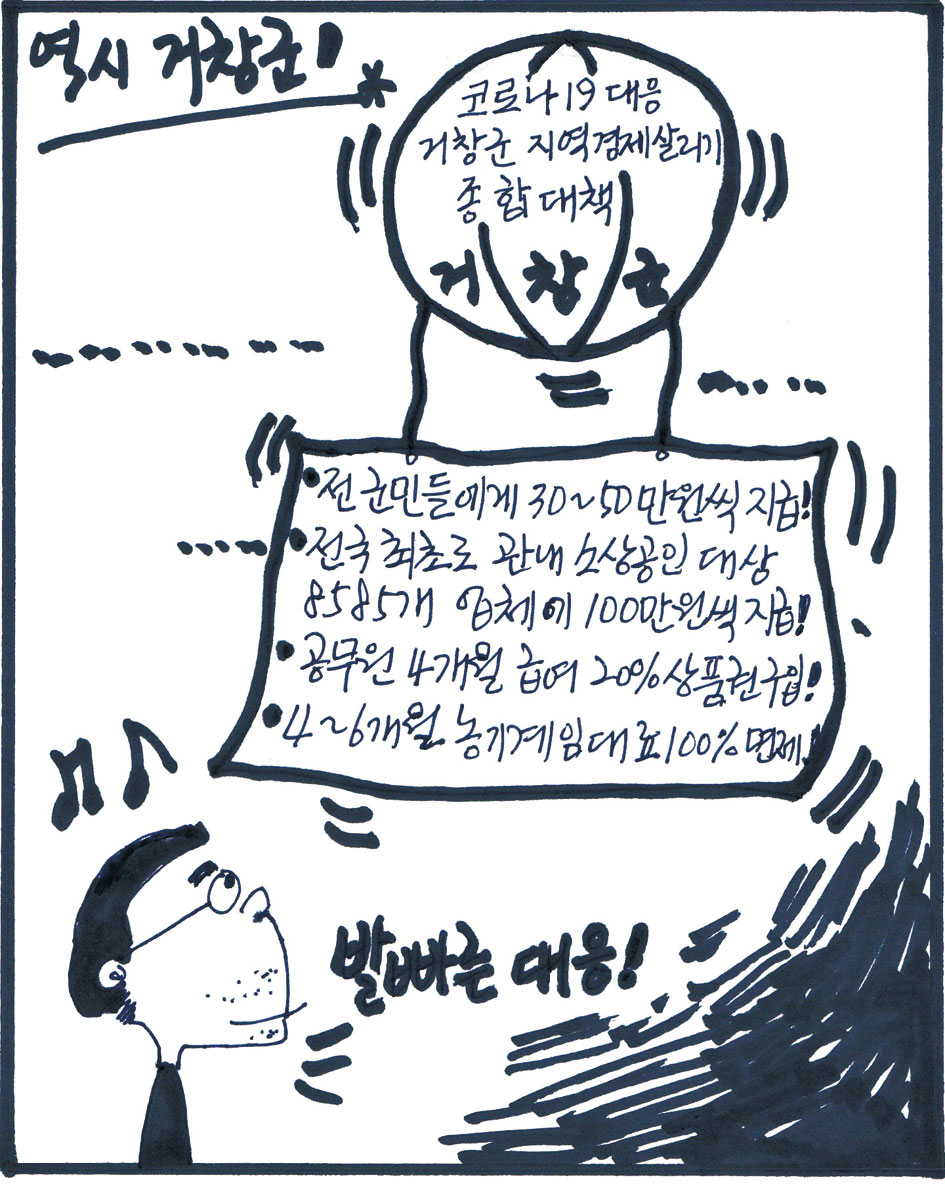 역시 거창군!
코로나19 대응
거창군 지역경제살리기
종합대책
거창군
• 전 군민들에게 30~50만원씩 지급!
• 전국 최초로 관내 소상공인 대상
8585개 업체에 100만원씩 지급!
• 공무원 4개월 급여 20% 상품권구입!
• 4~6개월 농기계임대료 100% 면제!
발빠른 대응!